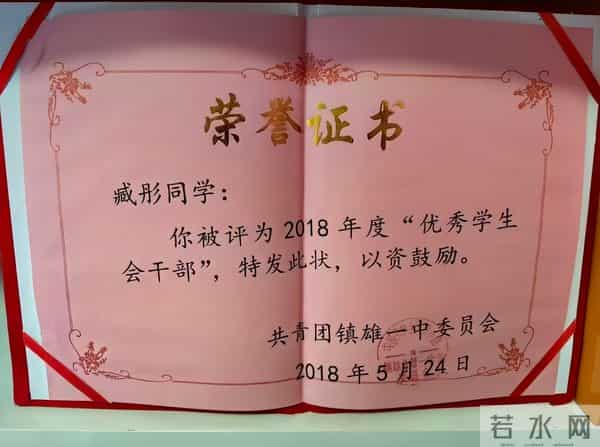 荣誉证书
臧彤同学：
你被评为 2018 年度“优秀学生
会干部”，特发此状，以资鼓励。
共青团镇雄一中委员会
2018 年 5 月 24 日
若水网